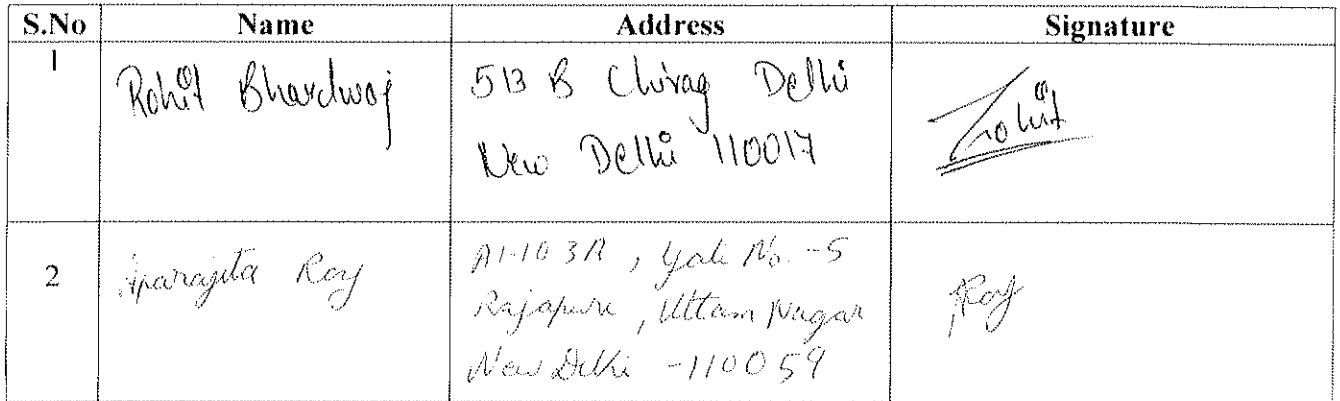 S.No Name Address Signature
1 Rohit Bhardwaj 513 B Chirag Delhi Rohit
New Delhi 110017
2 Aparajita Roy A1-103A, Gali No. -5 Roy
Rajapuri, Uttam Nagar
New Delhi -110059